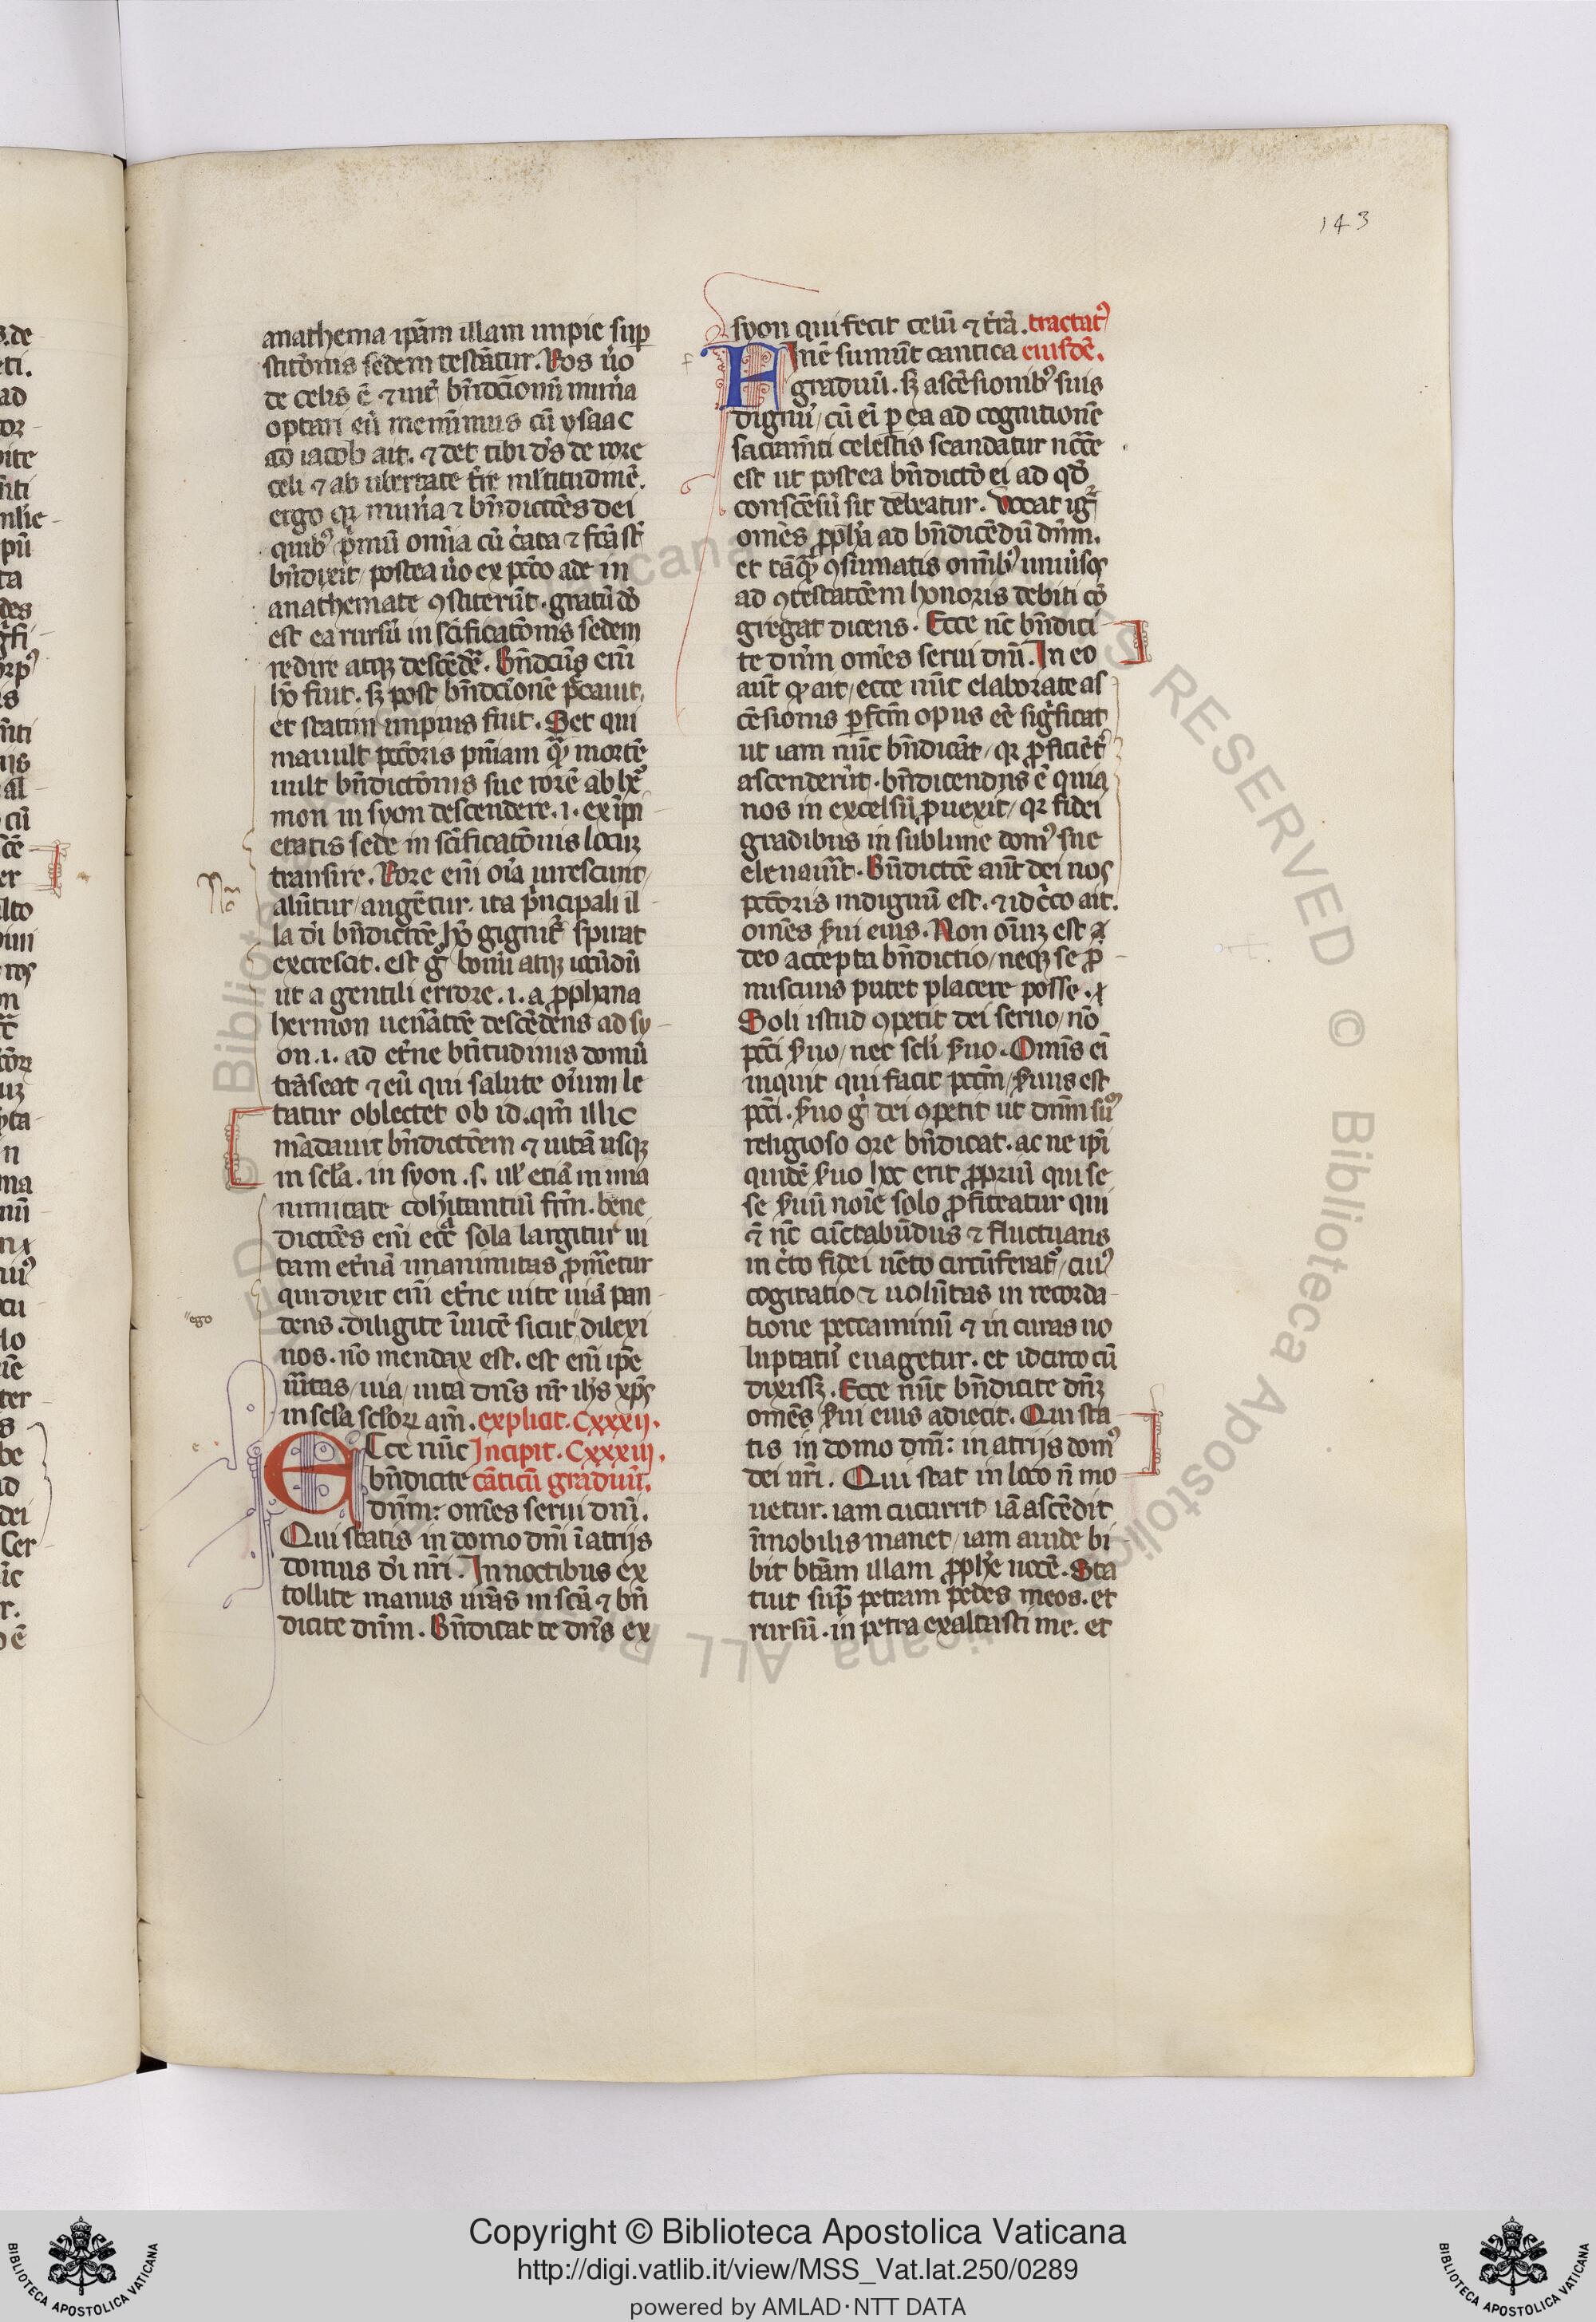 143
anathema ipãm illam impie sup
stitõnis sedem testãtur. Ros ũo
de celis ẽ ⁊ int̃ bñdc̃ionũ muña
optari eũ meminimus cũ ysaac
ad iacob ait. ⁊ det tibi ds̃ de rore
celi ⁊ ab ubertate tr̃e ml̃titudinẽ.
ergo qꝛ muña ⁊ bñdictõẽs dei
quibꝰ p̃mũ omĩa cũ c̃ata ⁊ fc̃a st̃
bñdixit / postea ũo ex pc̃cõ ade in
anathemate ꝯstiterũt. gratũ dõ
est ea rursũ in sc̃ificatõnis sedem
redire atqꝫ descẽdẽ. Bñdcũs eñi
hõ fuit. sꝫ post bñdc̃ionẽ pc̃cauit,
et statim impius fiut. Set qui
mauult pc̃cõris pñiam q̃ mortẽ
uult bñdictõnis sue rorẽ ab hẽr
mon in syon descendere. i. ex ĩpi
etatis sede in sc̃ificatõnis locuꝫ
transire. Rore eñi oĩa uirescunt /
alũtur / augẽtur. ita p̃ncipali il
la dĩ bñdictõẽ hõ gignit̃ spirat
excrescit. est g̊ bonũ atqꝫ iocũdũ
ut a gentili errore. i. a ꝓphana
hermon uen̄ãtõẽ descẽdens ad sy
on. i. ad et̃ne btĩtudinis domũ
trãseat ⁊ eũ qui salute oĩum le
tatur oblectet ob id. qm̃ illic
mãdauit bñdictõẽm ⁊ uitã usqꝫ
in scl̃a. in syon. s. ul̃ etiã in una
nimitate cohĩtantiũ frm̃. bene
dictõẽs eñi ecc̃e sola largitur ui
tam et̃nã unanimitas ꝓm̃etur
qui dixit eñi et̃ne uite uiã pan
dens. diligite ĩuicẽ sicut dilexi
"ego
uos. nõ mendax est. est eñi ip̃e
ũitas / uia / uita dñs nr̃ ihs̃ xp̃s
in scl̃a scl̃orꝫ am̃. explicit. Cxxxij.
ECce nũc Incipit. Cxxxiij.
bñdicite cãticũ graduũ.
dnm̃: omẽs serui dñi.
Qui statis in domo dñi ĩ atrijs
domus dĩ nr̃i. In noctibus ex
tollite manus ur̃as in sc̃a ⁊ bñ
dicite dnm̃. Bñdicat te dñs ex
syon qui fecit celũ ⁊ tr̃ã. tractatꝰ
FInẽ sumũt cantica eiusdẽ.
graduũ. sꝫ ascẽsionibꝰ suis
dignũ / cũ eĩ p ea ad cognitionẽ
sacram̃ti celestis scandatur nc̃cẽ
est ut postea bñdictõ ei ad qð
conscẽsũ sit debeatur. Vocat ig̃
omẽs ꝓph̃a ad bñdicẽdũ dnm̃.
et tãq̃ ꝯsũmatis omĩbꝰ uniũsos
ad ꝯtẽstatõẽm honoris debiti cõ
gregat dicens. Ecce nc̃ bñdici
te dnm̃ omẽs serui dñi. In eo
aũt ꝙ ait / ecce nũc elaborate as
cẽsionis pfcm̃ opus eẽ sig̃ficat
ut iam nũc bñdicãt / qꝛ ꝓficiẽt̃
ascenderũt. bñdicendus ẽ quia
nos in excelsũ ꝓuexit / qꝛ fidei
gradibus in sublime domꝰ sue
eleuauit. Bñdictõẽ aũt dei nos
pc̃cõris indignũ est. ⁊ idc̃co ait.
omẽs s̃ui eius. Non oĩuꝫ est a
deo accepta bñdictio / neqꝫ se ꝓ
miscuus putet placere posse.
Soli istud ꝯpetit dei seruo / nõ
pc̃ci s̃uo / nec scl̃i s̃uo. Omĩs eĩ
inquit qui facit pc̃cm̃ / s̃uus est
pc̃ci. s̃uo g̊ dei ꝯpetit ut dnm̃ suꝰ
religioso ore bñdicat. ac ne ip̃i
quidẽ s̃uo hoc erit ꝓpriũ qui se
se s̃uũ noĩe solo ꝓfiteatur qui
⁊ nc̃ cũctabũdus ⁊ fluctuans
in c̃to fidei uẽto circũferat̃ / cuiꝰ
cogitatio ⁊ uolũtas in recorda
tione peccaminũ ⁊ in curas uo
luptatũ euagetur. et idcirco cũ
dixissꝫ. Ecce nũc bñdicite dñꝫ
omẽs s̃ui eius adiecit. Qui sta
tis in domo dñi: in atrijs domꝰ
dei nr̃i. Qui stat in loco ñ mo
uetur. iam cucurrit iã ascẽdit
ĩmobilis manet / iam auide bi
bit btãm illam ꝓph̃e uocẽ. Sta
tuit sup̃ petram pedes meos. et
rursũ. in petra exaltasti me. et
Copyright © Biblioteca Apostolica Vaticana
http://digi.vatlib.it/view/MSS_Vat.lat.250/0289
powered by AMLAD·NTT DATA
BIBLIOTECA APOSTOLICA VATICANA
BIBLIOTECA APOSTOLICA VATICANA